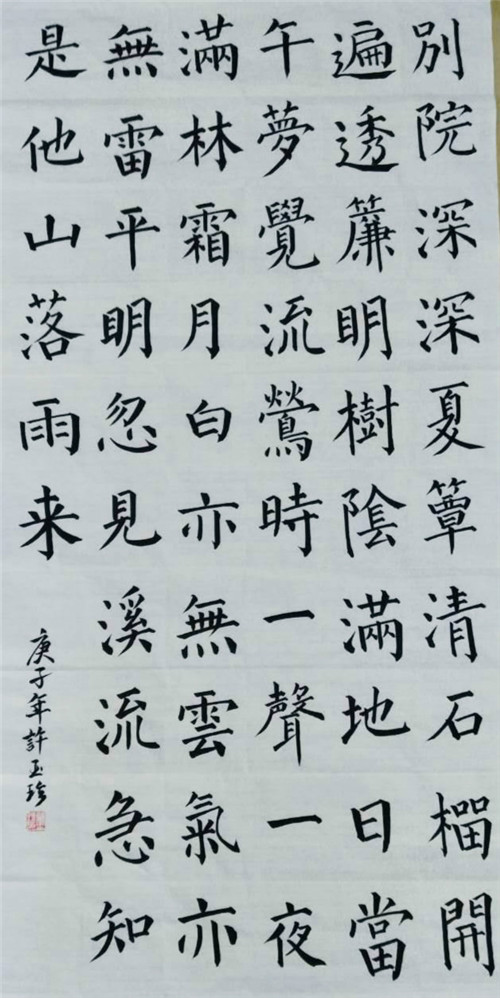 別院深深夏簟清石榴開
遍透簾明樹陰滿地日當
午夢覺流鶯時一聲一夜
滿林霜月白亦無雲氣亦
無雷平明忽見溪流急知
是他山落雨来
庚子年許玉珍